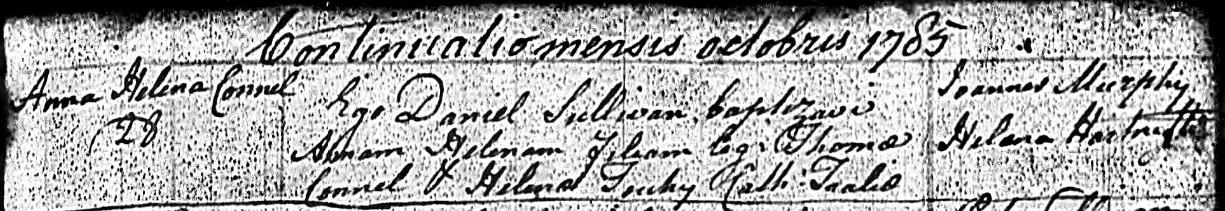 Continuatio mensis octobris 1785
Anna Helena Connel
28
Ego Daniel Sullivan, baptizavi
Annam Helenam filiam leg: Thomæ
Connel & Helenæ Touhy Cath: Traliæ
Joannes Murphy
Helena